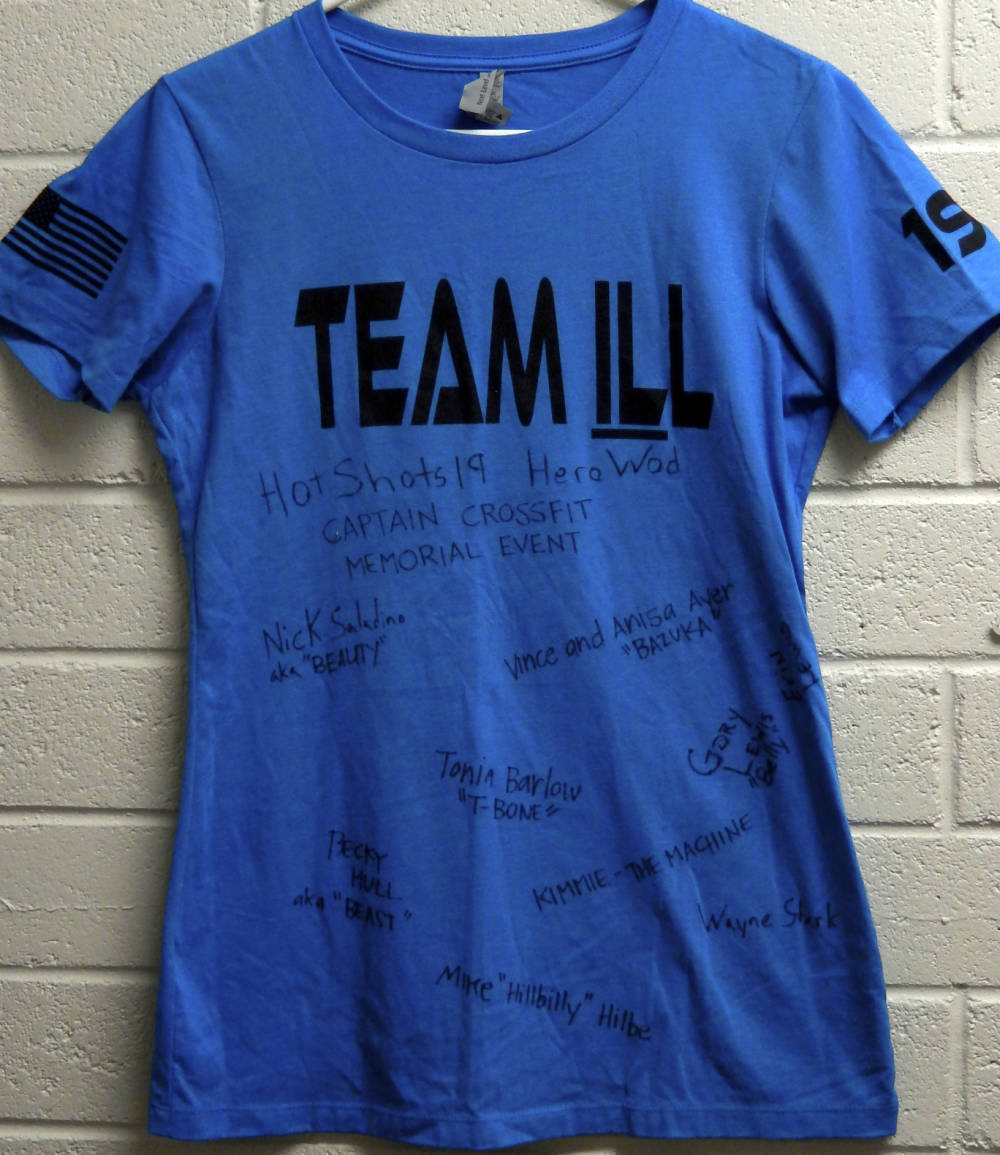 Next Level
19
TEAM ILL
Hot Shots 19 Hero Wod
CAPTAIN CROSSFIT
MEMORIAL EVENT
Nick Saladino
aka "BEAUTY"
Vince and Anisa Ayer
"BAZUKA"
GORY
LEWIS
"Belly"
Tonia Barlow
"T-BONE"
BECKY
HULL
aka "BEAST"
KIMMIE - THE MACHINE
Wayne Stark
Mike "Hillbilly" Hilbe